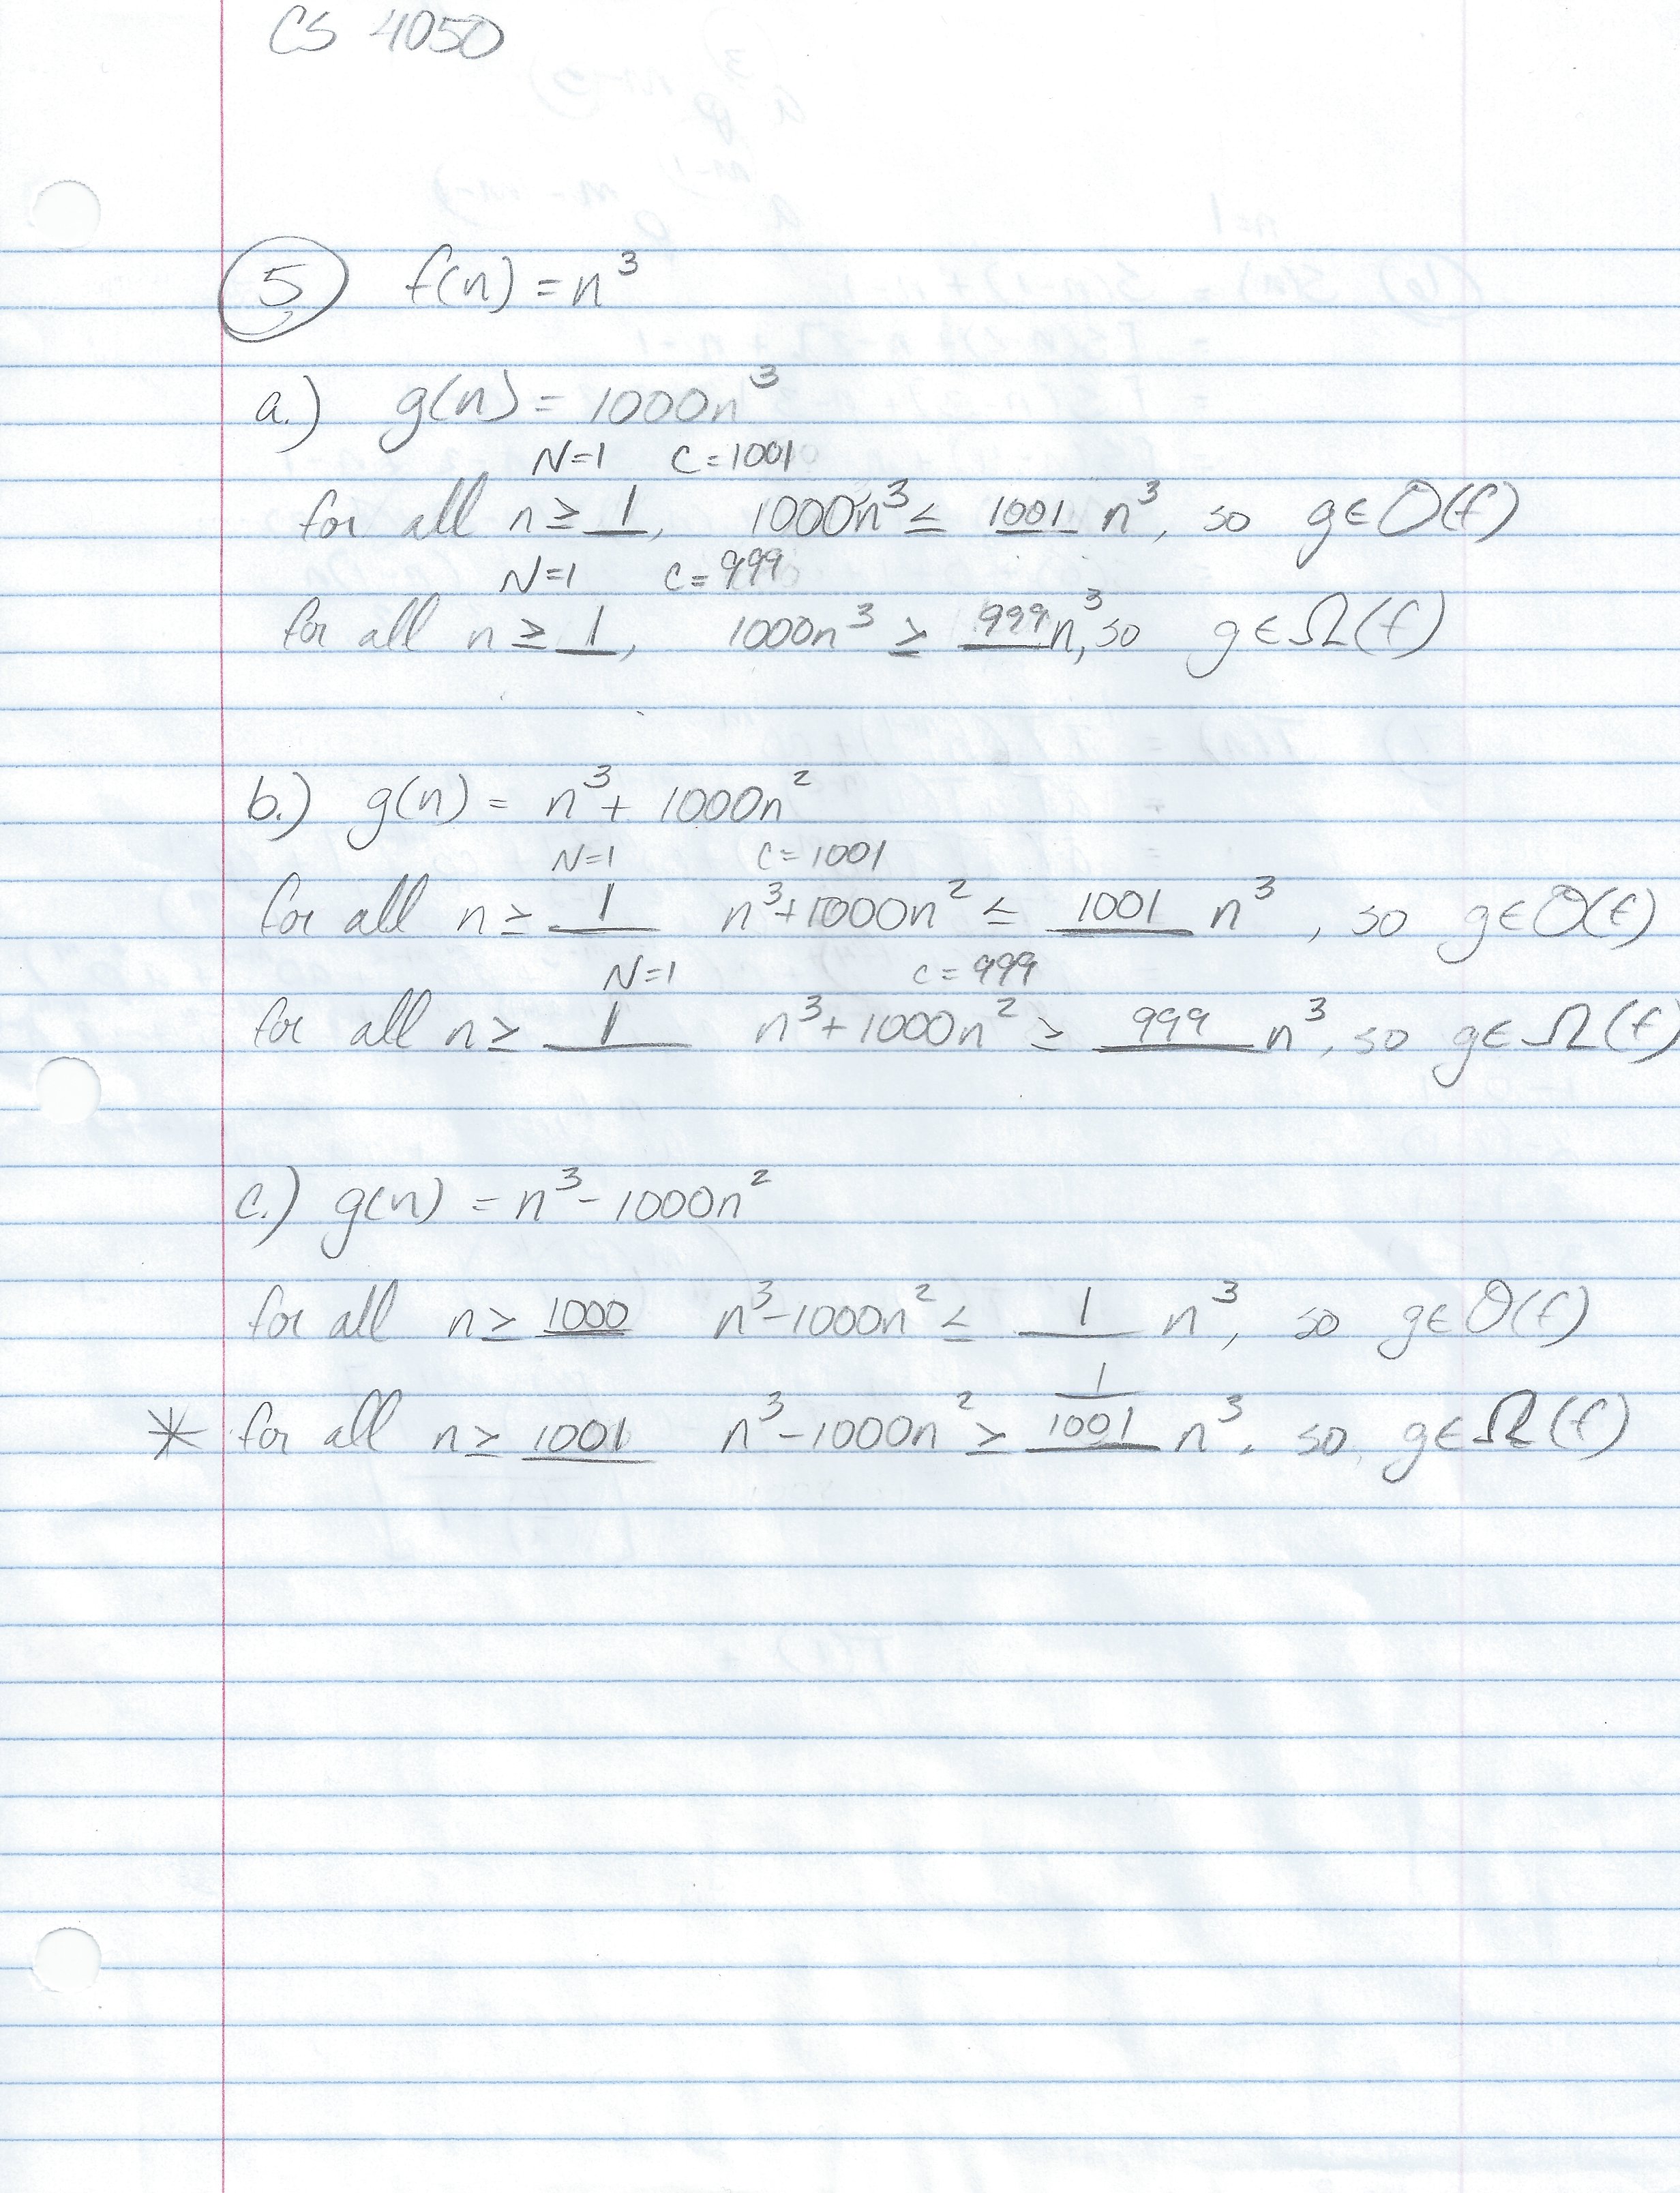 CS 4050
5 f(n) = n³
a.) g(n) = 1000n³
N=1 C=1001
for all n ≥ 1, 1000n³ ≤ 1001 n³, so g∈O(f)
N=1 C=999
for all n ≥ 1, 1000n³ ≥ 999 n³, so g∈Ω(f)
b.) g(n) = n³ + 1000n²
N=1 C=1001
for all n ≥ 1 n³+1000n² ≤ 1001 n³, so g∈O(f)
N=1 C=999
for all n ≥ 1 n³+1000n² ≥ 999 n³, so g∈Ω(f)
c.) g(n) = n³-1000n²
for all n ≥ 1000 n³-1000n² ≤ 1 n³, so g∈O(f)
* for all n ≥ 1001 n³-1000n² ≥ 1/1001 n³, so g∈Ω(f)